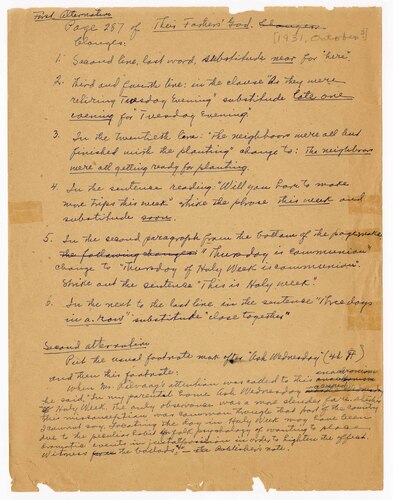 First Alternative
Page 287 of Their Fathers' God. Changes.
Changes.
[1931, October?]
1. Second line, last word, substitute near for "here".
2. Third and fourth line: in the clause "As they were
retiring Tuesday Evening" substitute late one
evening for Tuesday Evening.
3. In the twentieth line: "The neighbors were all but
finished with the planting" change to: The neighbors
were all getting ready for planting.
4. In the sentence reading: "Will you have to make
more trips this week" strike the phrase this week and
substitute soon.
5. In the second paragraph from the bottom of the page make
the following changes "Thursday is communion"
change to "Thursday of Holy Week is communion".
Strike out the sentence "This is Holy week".
6. In the next to the last line in the sentence "Three days
in a row" substitute "close together"
Second alternative
Put the usual footnote mark after "Ash Wednesday" (4th ¶)
and then this footnote:
When Mr. Rölvaag's attention was called to this anachronism
he said, "In my parental home Ash Wednesday
of Holy Week. The only observance was a
misconception was common though that part of the country
I cannot say. Locating the day in Holy Week may have been
due to the peculiar folk psychology of wanting to place
dramatic events in juxtaposition in order to highten the effect.
Witness the ballads." — the publisher's note.